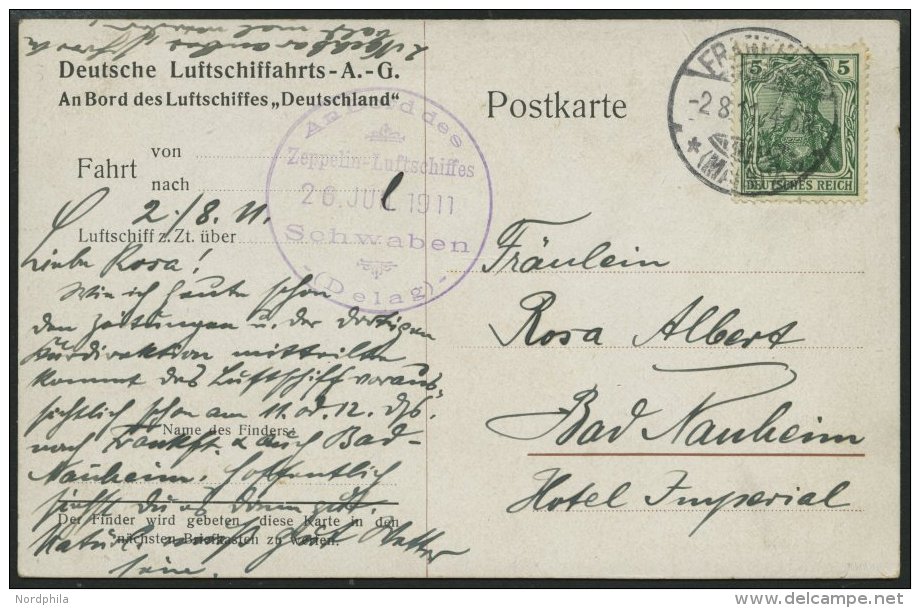 Deutsche Luftschiffahrts-A.-G.
An Bord des Luftschiffes „Deutschland“
Postkarte
5 5
DEUTSCHES REICH
FRANKF
-2 8.11
An Bord des
Zeppelin-Luftschiffes
26. JUL. 1911
Schwaben
(Delag)
Fahrt
von
nach
2./8. 11.
Luftschiff z. Zt. über
Liebe Rosa!
Wie ich heute schon
den Zeitungen u. der dortigen
Kurdirektion mitteilte
kommt das Luftschiff voraus-
sichtlich schon am 11. od. 12. ds.
Name des Finders:
nach Frankft. & auch Bad-
Nauheim, hoffentlich
siehst Du es dann gut.
Der Finder wird gebeten, diese Karte in den
nächsten Briefkasten zu werfen.
gut Wetter
Fräulein
Rosa Albert
Bad Nauheim
Hotel Imperial
Nordphila
www.delcampe.net